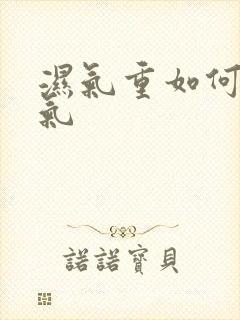 濕氣重如何
氣
諾諾寶貝